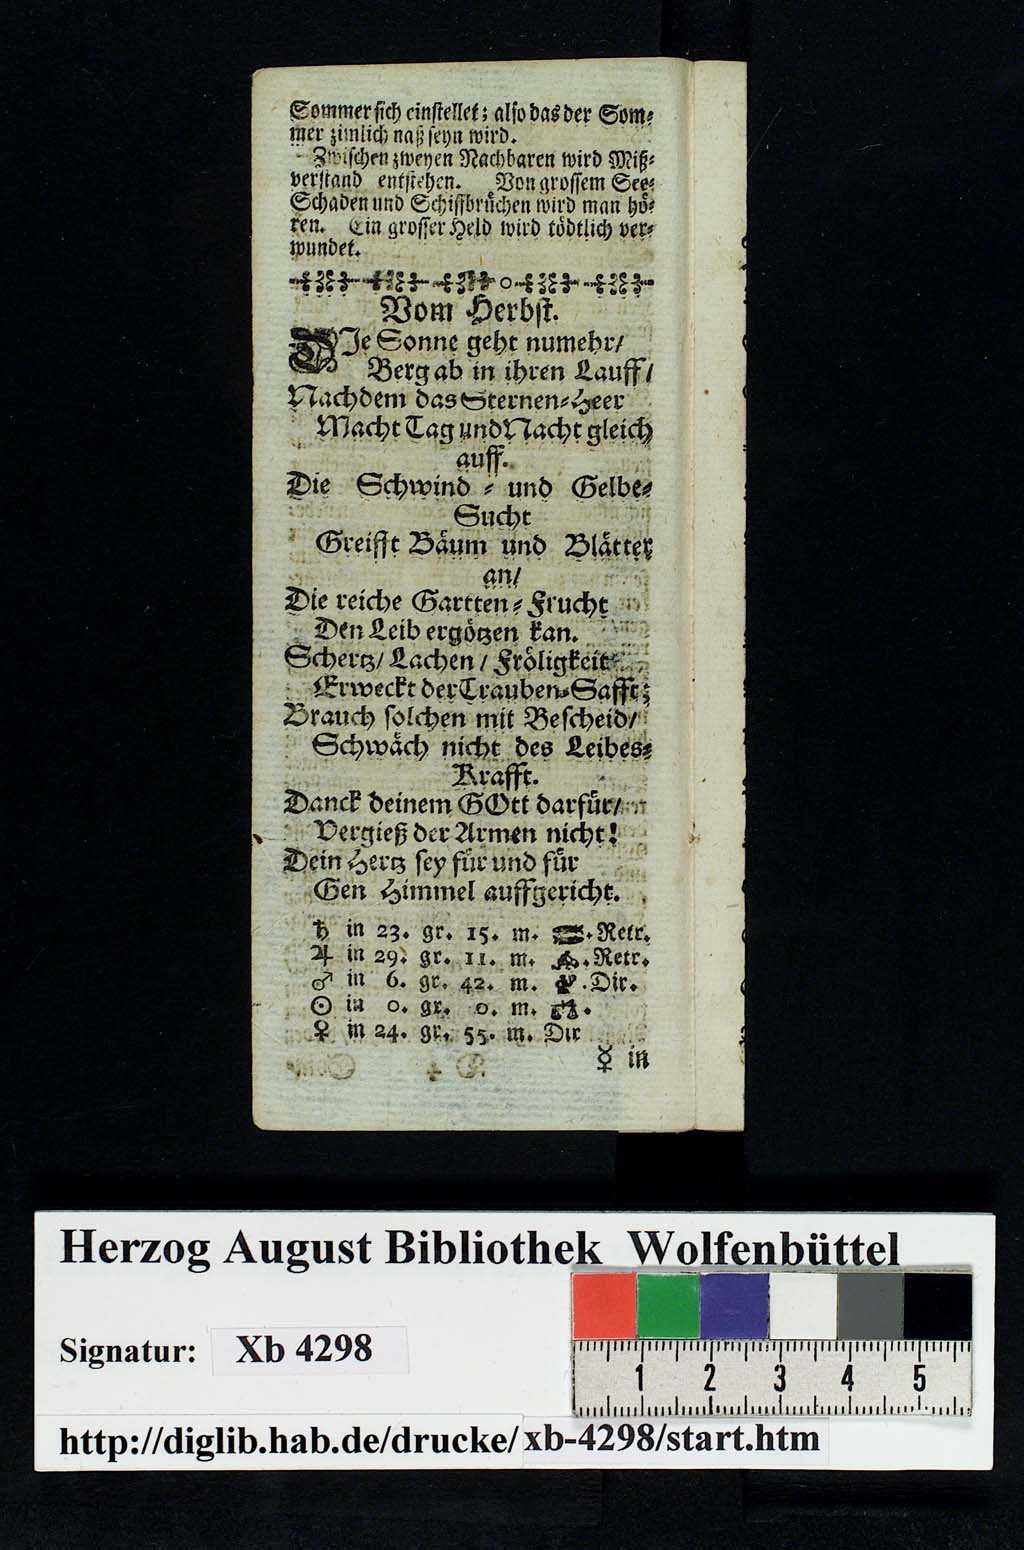 Sommer sich einstellet; also das der Som⸗
mer zimlich naß seyn wird.
Zwischen zweyen Nachbaren wird Miß⸗
verstand entstehen. Von grossem See⸗
Schaden und Schiffbrüchen wird man hö⸗
ren. Ein grosser Held wird tödtlich ver⸗
wundet.
Vom Herbst.
DIe Sonne geht numehr/
Berg ab in ihren Lauff/
Nachdem das Sternen⸗Heer
Macht Tag und Nacht gleich
auff.
Die Schwind ⸗ und Gelbe⸗
Sucht
Greifft Bäum und Blätter
an/
Die reiche Gartten⸗Frucht
Den Leib ergötzen kan.
Schertz/ Lachen/ Fröligkeit
Erweckt der Trauben⸗Safft;
Brauch solchen mit Bescheid/
Schwäch nicht des Leibes⸗
Krafft.
Danck deinem GOtt darfür/
Vergieß der Armen nicht!
Dein Hertz sey für und für
Gen Himmel auffgericht.
♄ in 23. gr. 15. m. ♓. Retr.
♃ in 29. gr. 11. m. ♒. Retr.
♂ in 6. gr. 42. m. . Dir.
☉ in 0. gr. 0. m. ♎.
♀ in 24. gr. 55. m. Dir
☿ in
Herzog August Bibliothek Wolfenbüttel
Signatur: Xb 4298
1 2 3 4 5
http://diglib.hab.de/drucke/xb-4298/start.htm